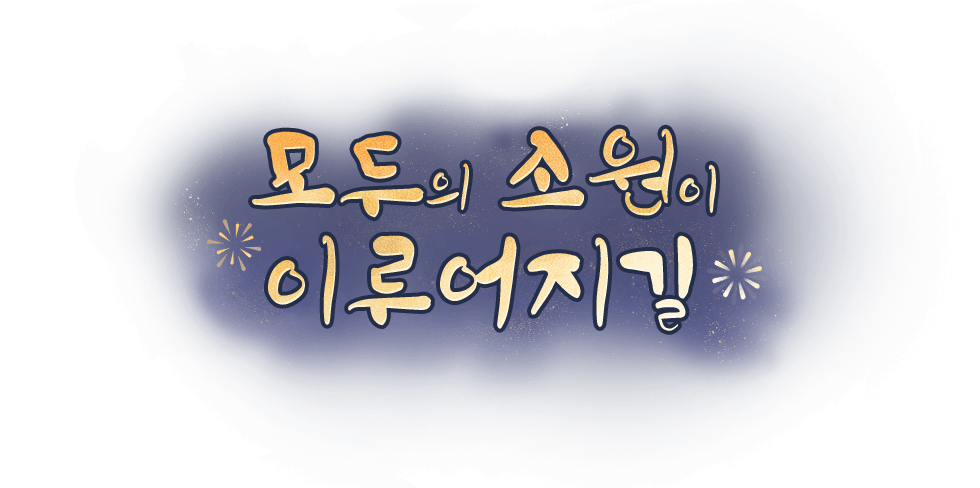 모두의 소원이
이루어지길